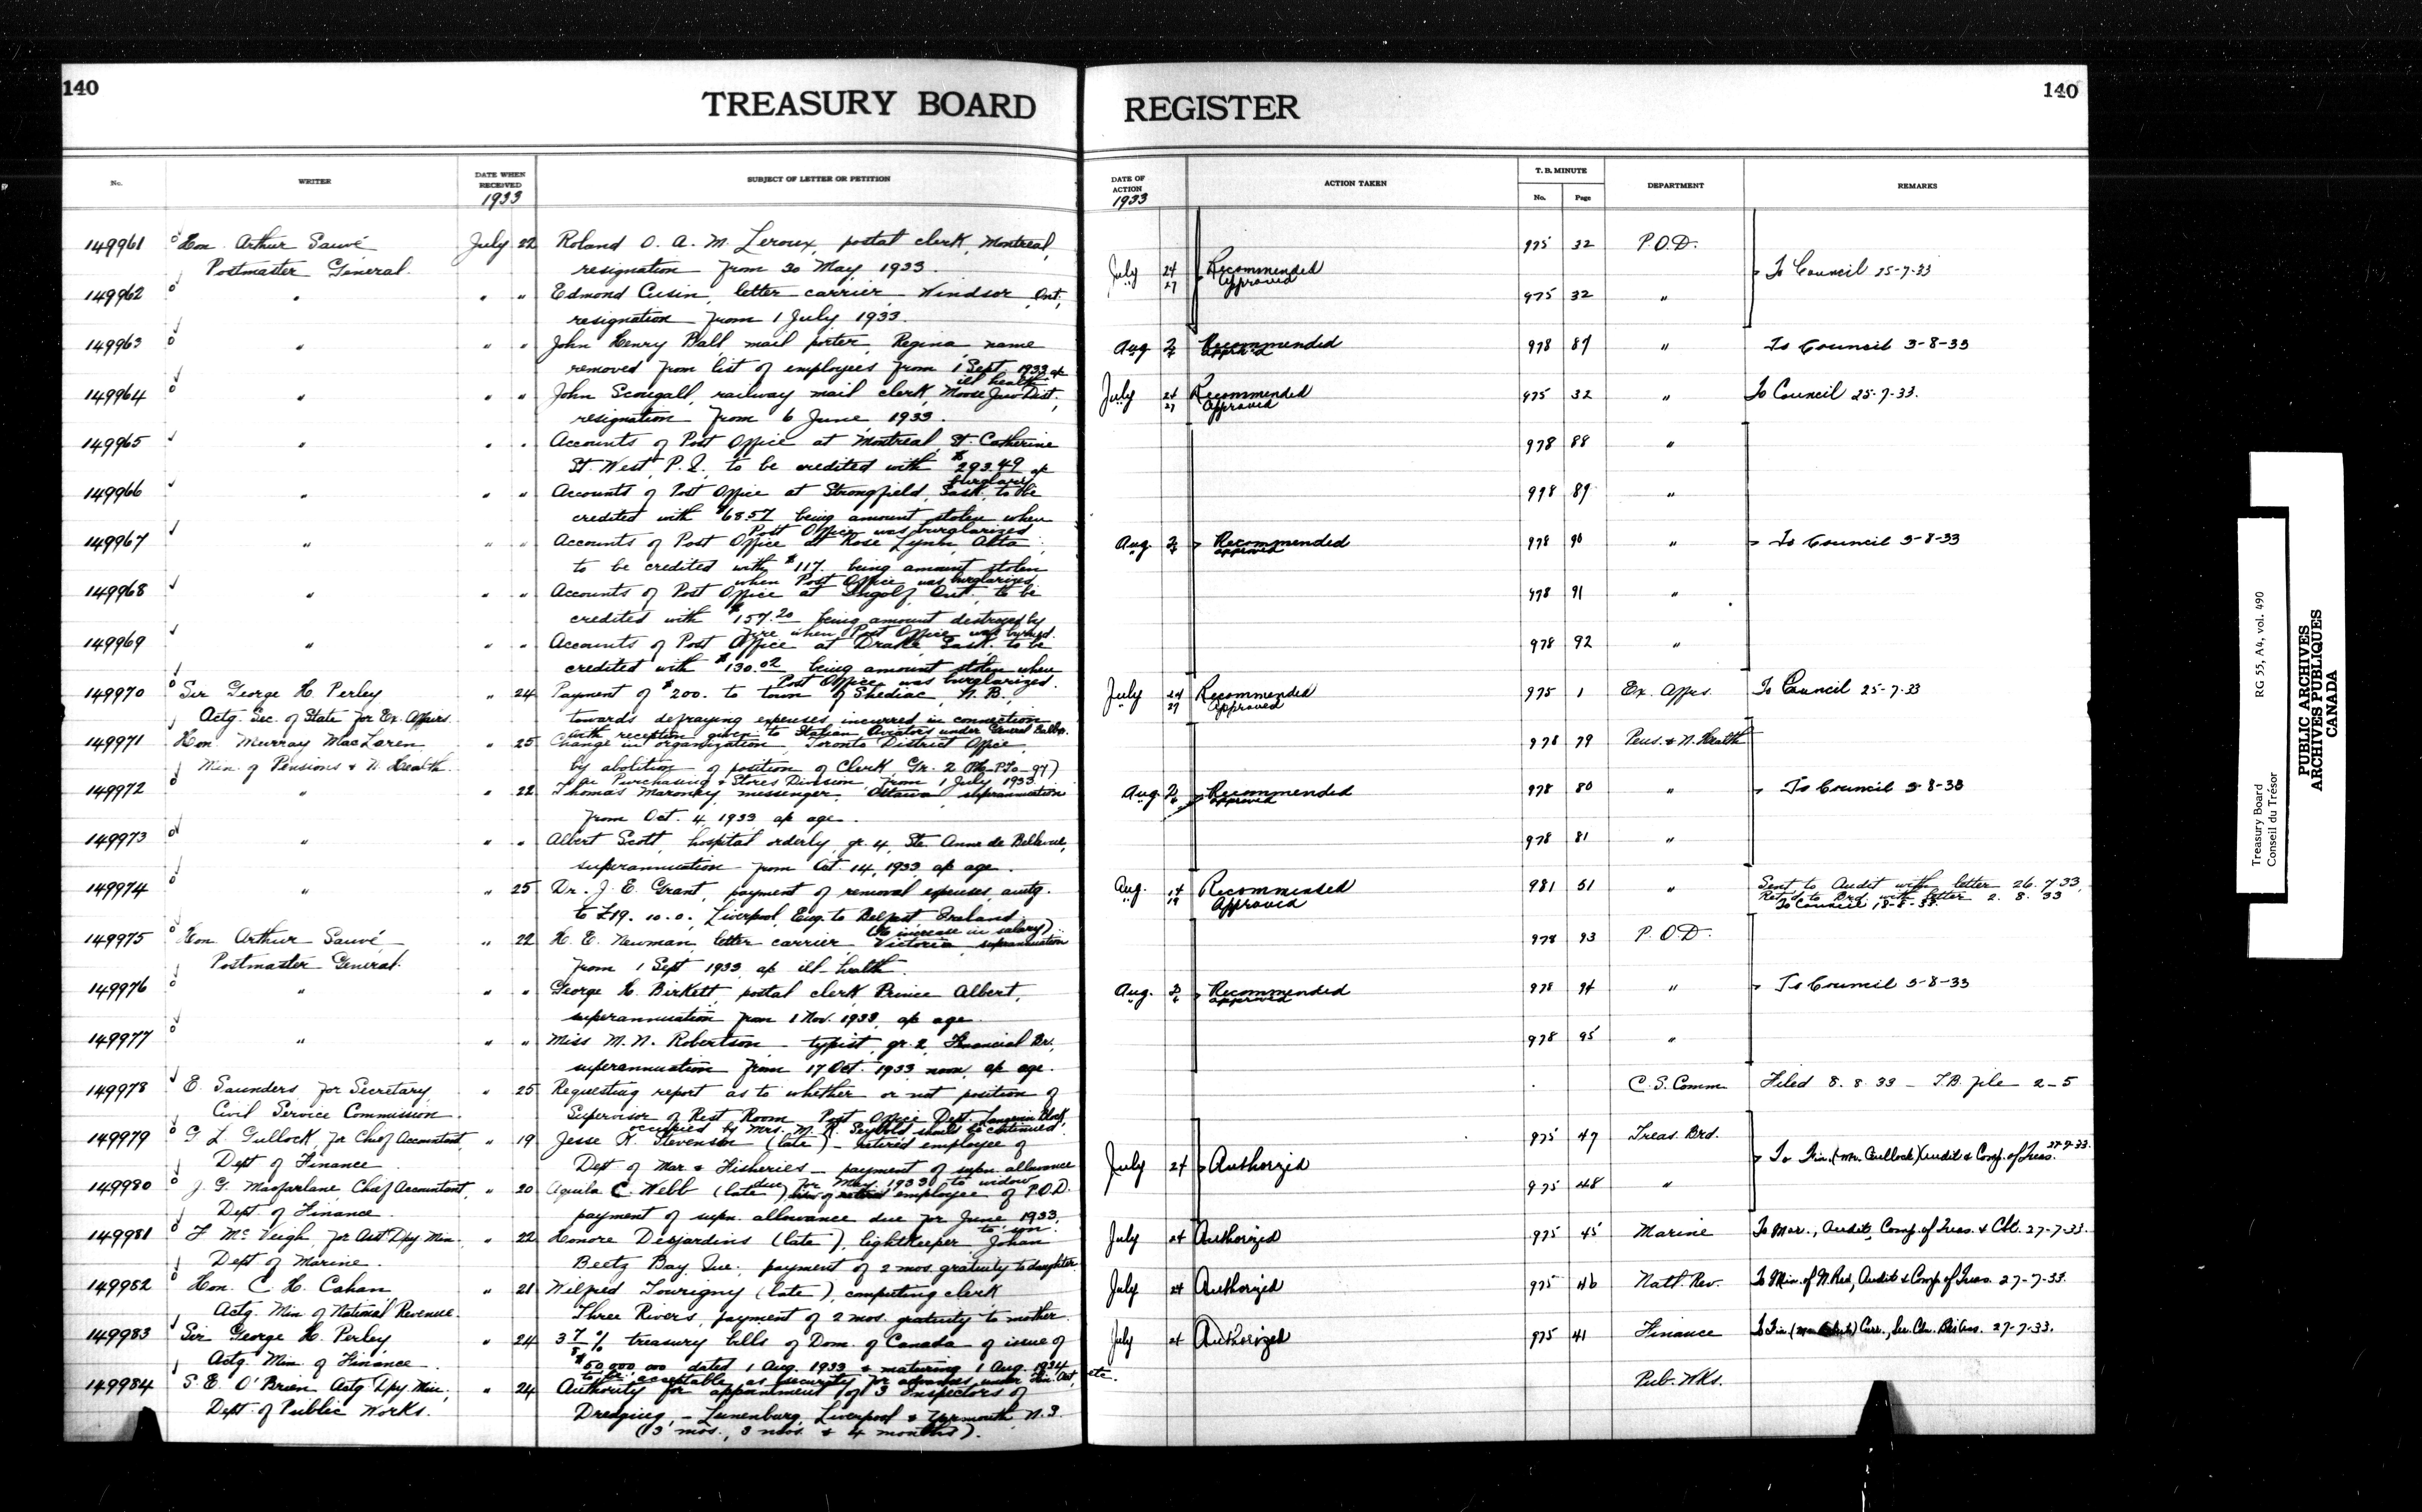 140
TREASURY BOARD
No.
WRITER
DATE WHEN RECEIVED
1933
SUBJECT OF LETTER OR PETITION
149961 Hon. Arthur Sauvé July 22 Roland O. A. M. Leroux, postal clerk, Montreal,
Postmaster General. resignation from 30 May, 1933.
149962 " " " Edmond Cusin, letter carrier, Windsor, Ont,
resignation from 1 July 1933.
149963 " " " John Henry Ball mail porter, Regina name
removed from list of employees from 1 Sept, 1933 a/c
ill health
149964 " " " John Scougall, railway mail clerk, Moose Jaw Dist.,
resignation from 6 June, 1933.
149965 " " " Accounts of Post Office at Montreal, St. Catherine
St. West, P.Q. to be credited with $293.49 a/c
burglary
149966 " " " Accounts of Post Office at Strongfield, Sask. to be
credited with $68.57 being amount stolen when
Post Office was burglarized
149967 " " " Accounts of Post Office at Rose Lynn, Alta.,
to be credited with $117. being amount stolen
when Post Office was burglarized.
149968 " " " Accounts of Post Office at Ingolf, Ont., to be
credited with $157.20 being amount destroyed by
fire when Post Office was burned.
149969 " " " Accounts of Post Office at Drake Sask. to be
credited with $130.02 being amount stolen when
Post Office was burglarized.
149970 Sir George H. Perley " 24 Payment of $200. to town of Shediac, N.B.,
Actg. Sec. of State for Ex. Affairs. towards defraying expenses incurred in connection
with reception given to Italian Aviators under General Balbo.
149971 Hon. Murray MacLaren " 25 Change in organization, Toronto District Office,
Min. of Pensions & N. Health. by abolition of position of Clerk Gr. 2
Purchasing & Stores Division, from 1 July 1933.
149972 " " 22 Thomas Maroney, messenger, Ottawa superannuation
from Oct. 4, 1933 a/c age.
149973 " " " Albert Scott, hospital orderly, gr. 4, Ste. Anne de Bellevue,
superannuation from Oct 14, 1933 a/c age.
149974 " " 25 Dr. J. E. Grant, payment of removal expenses, amtg.
to £19. 10. 0. Liverpool, Eng. to Belfast Ireland.
(No increase in salary)
149975 Hon. Arthur Sauvé " 22 H. E. Newman, letter carrier Victoria, superannuation
Postmaster General. from 1 Sept 1933, a/c ill-health.
149976 " " " George H. Birkett, postal clerk Prince Albert,
superannuation from 1 Nov. 1933, a/c age.
149977 " " " Miss M. N. Robertson - typist, gr. 2, Financial Br.,
superannuation from 17 Oct. 1933 noon, a/c age.
149978 E. Saunders, for Secretary " 25 Requesting report as to whether or not position of
Civil Service Commission. Supervisor of Rest Room - Post Office Dept. Langevin Block,
occupied by Mrs. M. R. Seybold should be continued.
149979 G. L. Gullock, for Chief Accountant, " 19 Jesse R. Stevenson (late) - retired employee of
Dept of Finance Dept of Mar. & Fisheries - payment of supn. allowance
due for May, 1933 to widow
149980 J. G. Macfarlane, Chief Accountant, " 20 Aquila C. Webb (late) employee of P.O.D.
Dept. of Finance. payment of supn. allowance due for June 1933,
149981 F McVeigh, for Act Dpy Min. " 22 Honore Desjardins (late), lightkeeper, Johan
Dept of Marine. Beetz Bay, Que., payment of 2 mos. gratuity to daughter.
149982 Hon. C. H. Cahan " 21 Wilfred Tourigny (late), computing clerk
Actg. Min of National Revenue. Three Rivers, payment of 2 mos. gratuity to mother.
149983 Sir George H. Perley, " 24 3 7/8 % treasury bills of Dom. of Canada of issue of
Actg. Min. of Finance. $50,000,000 dated 1 Aug. 1933 & maturing 1 Aug. 1934
to be acceptable as security for advances under Fin. Act, etc.
149984 S. E. O'Brien Actg Dpy Min, " 24 Authority for appointment of 3 Inspectors of
Dept. of Public Works. Dredging, - Lunenburg, Liverpool & Yarmouth N.S.
(3 mos., 3 mos. & 4 months).
REGISTER
140
DATE OF ACTION
1933
ACTION TAKEN
T. B. MINUTE
No. Page
DEPARTMENT
REMARKS
975 32 P.O.D.
July 24 Recommended To Council 25-7-33
" 27 Approved
975 32 "
Aug 2 Recommended 978 87 " To Council 3-8-33
approved
July 24 Recommended 975 32 " To Council 25-7-33.
" 27 Approved
978 88 "
978 89 "
Aug. 2 Recommended 978 90 " To Council 3-8-33
approved
978 91 "
978 92 "
July 24 Recommended 975 1 Ex. Affrs. To Council 25-7-33
" 27 Approved
978 79 Pens. & N. Health
Aug. 2 Recommended 978 80 " To Council 3-8-33
approved
978 81 "
Aug. 14 Recommended 981 51 " Sent to Audit with letter 26.7.33.
19 Approved Ret'd to Brd. with letter 2. 8. 33
To Council 18-8-33.
978 93 P.O.D.
Aug. 2 Recommended 978 94 " To Council 3-8-33
approved
978 95 "
C.S. Comm Filed 8.8.33 - T.B. file 2-5
975 47 Treas. Brd.
July 24 Authorized To Fin. (Mr. Gullock) Audit & Comp. of Treas. 27-7-33.
975 48 "
July 24 Authorized 975 45 Marine To Mar., Audit, Comp. of Treas. & 27-7-33.
July 24 Authorized 975 46 Natl. Rev. To Min. of N. Rev, Audit & Comp of Treas. 27-7-33.
July 24 Authorized 975 41 Finance To Fin 27-7-33.
Pub. Wks.
Treasury Board RG 55, A4, vol. 490
Conseil du Trésor
PUBLIC ARCHIVES
ARCHIVES PUBLIQUES
CANADA